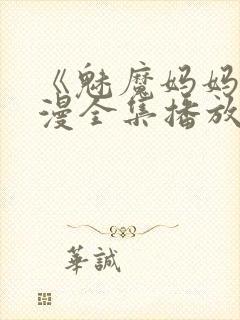 《魅魔妈妈
漫全集播放
華誠